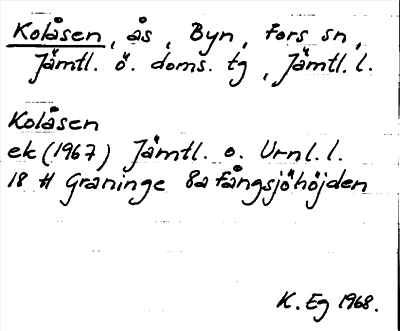 Kolåsen, ås, Byn, Fors sn,
Jämtl. ö. doms. tg, Jämtl. l.
Kolåsen
ek (1967) Jämtl. o. Urnl. l.
18 H Graninge 8a Fångsjöhöjden
K. Eg 1968.